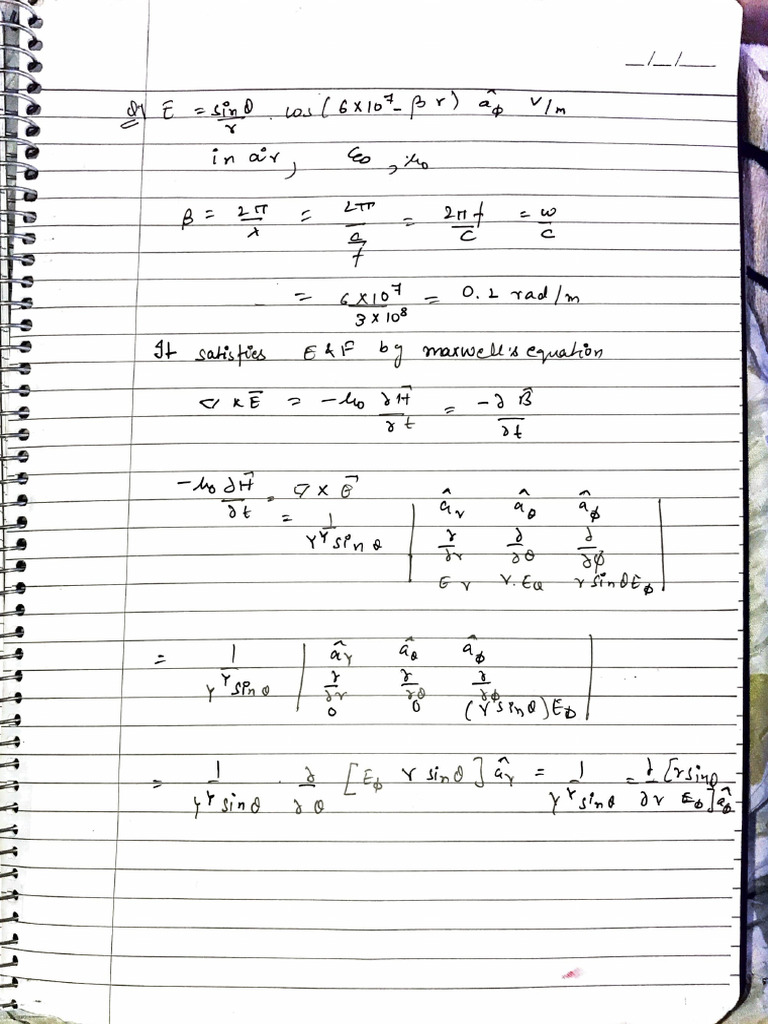 __/__/____
Q) E = sinθ/r . cos(6×10⁷ - βr) â_ϕ V/m
in air, ε₀, μ₀
β = 2π/λ = 2π/(c/f) = 2πf/c = ω/c
= 6×10⁷/3×10⁸ = 0.2 rad/m
It satisfies E & F by maxwell's equation
∇ × E⃗ = -μ₀ ∂H⃗/∂t = -∂B⃗/∂t
-μ₀ ∂H⃗/∂t = ∇ × E⃗
= 1/(r² sin θ) | â_r â_θ â_ϕ |
| ∂/∂r ∂/∂θ ∂/∂ϕ |
| E_r r.E_θ r sinθ E_ϕ |
= 1/(r² sin θ) | â_r â_θ â_ϕ |
| ∂/∂r ∂/∂θ ∂/∂ϕ |
| 0 0 (r sinθ)E_ϕ |
= 1/(r² sin θ) . ∂/∂θ [E_ϕ r sinθ] â_r = 1/(r² sin θ) = ∂/∂r [r sinθ
E_ϕ] â_ϕ